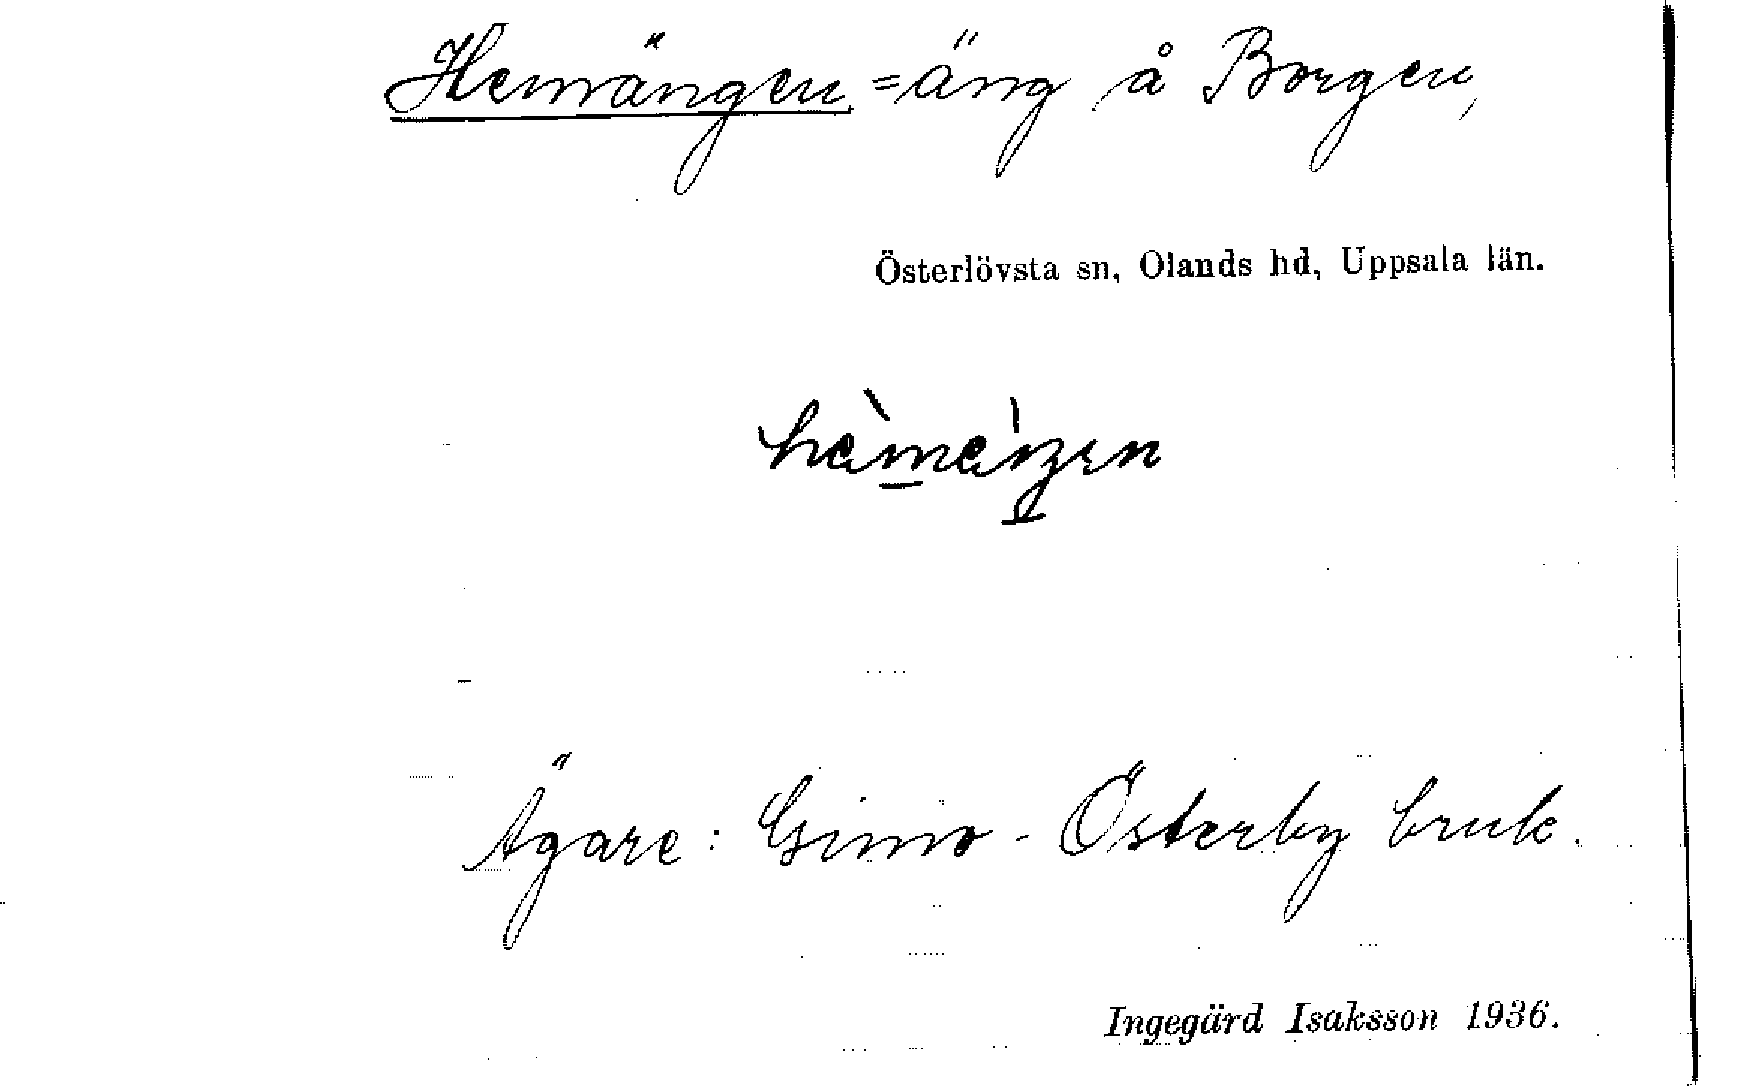 Hemängen = äng å Borgen,
Österlövsta sn, Olands hd, Uppsala län.
Ägare: Gimo - Österby bruk.
Ingegärd Isaksson 1936.